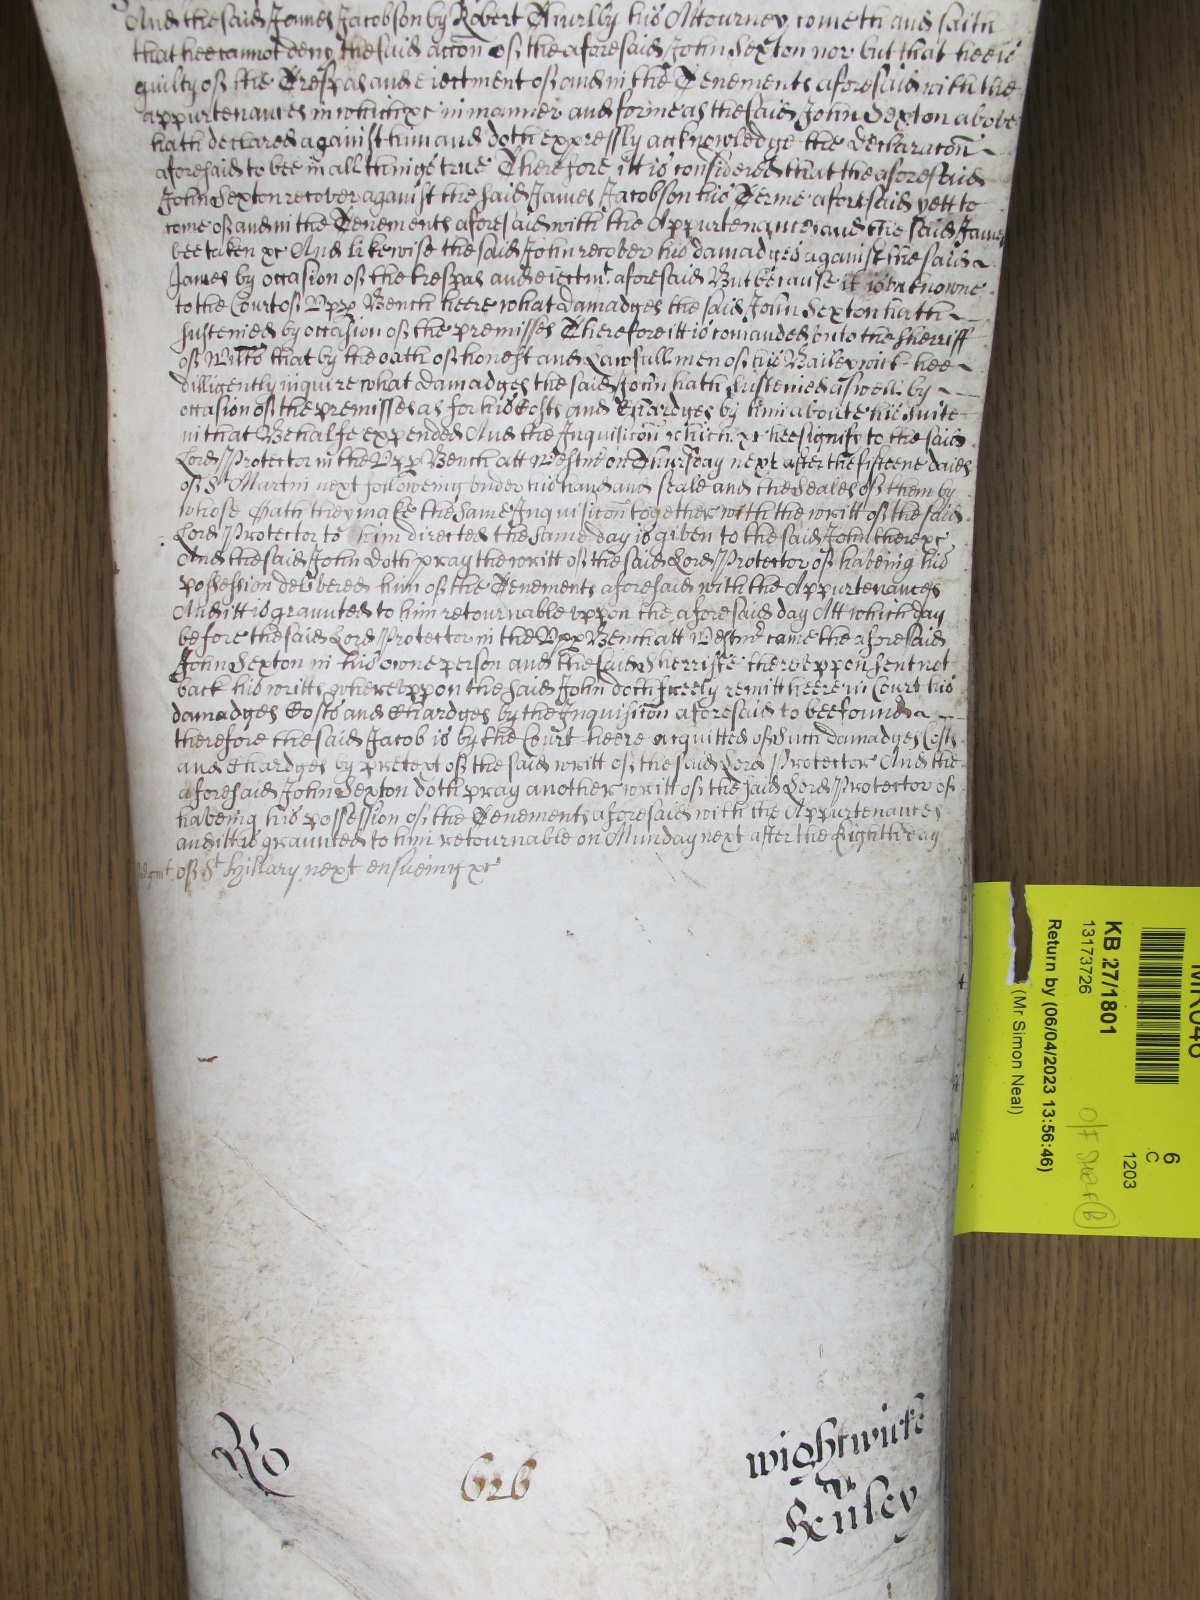 And the said James Jacobson by Robert Thurlby his Attourney cometh and saith
that hee cannot deny the said accon of the aforesaid John Sexton nor but that hee is
guilty of the Trespas and eiectment of and in the Tenements aforesaid with the
appurtenances in which &c in manner and forme as the said John Sexton above
hath declared against him and doth expressly acknowledge the declaracon
aforesaid to bee in all things true Therefore itt is considered that the aforesaid
John Sexton recover against the said James Jacobson his Terme aforesaid yett to
come of and in the Tenements aforesaid with the Appurtenances and the said James
bee taken &c And likewise the said John recover his damadges against the said
James by occasion of the trespas and eiectmt aforesaid But because it is unknowne
to the Court of Upp Bench heere what damadges the said John Sexton hath
susteined by occasion of the premisses Therefore itt is comanded unto the Sherriff
of that by the oath of honest and Lawfull men of his Bailywick hee
dilligently inquire what damadges the said John hath susteined aswell by
occasion of the premisses as for his Costs and Chardges by him aboute his suite
in that Behalfe expended And the Inquisicon which &c hee signify to the said
Lord Protector in the Upp Bench att Westmr on Thursday next after the fifteene daies
of St Martin next followeing under his hand and seale and the Seales of them by
whose Oath they make the same Inquisicon together with the writt of the said
Lord Protector to him directed the same day is given to the said John there &c
And the said John doth pray the writt of the said Lord Protector of haveing his
possession delivered him of the Tenements aforesaid with the Appurtenances
And itt is graunted to him retournable uppon the aforesaid day Att which day
before the said Lord Protector in the Upp Bench att Westmr came the aforesaid
John Sexton in his owne person and the said Sherriffe thereuppon sent not
back his writts whereuppon the said John doth freely remitt heere in Court his
damadges Costs and Chardges by the Inquisicon aforesaid to bee found
therefore the said Jacob is by the Court heere acquitted of such damadges Costs
and Chardges by pretext of the said writt of the said Lord Protector And the
aforesaid John Sexton doth pray another writt of the said Lord Protector of
haveing his possession of the Tenements aforesaid with the Appurtenances
and itt is graunted to him retournable on Munday next after the Eighth day
of St Hillary next ensueing &c
Ro
626
wightwicke
Henley
KB 27/1801
13173726
Return by (06/04/2023 13:56:46)
(Mr Simon Neal)
6
C
1203